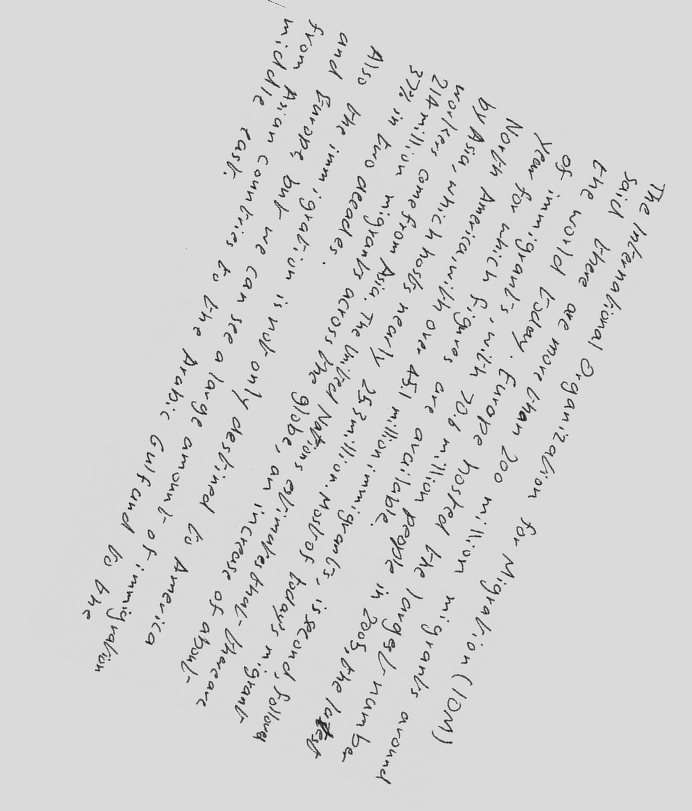 The International Organization for Migration (IOM)
said there are more than 200 million migrants around
the world today. Europe hosted the largest numbe
of immigrants, with 70.6 million people in 2005, the lastest
year for which figures are available.
North America, with over 451 million immigrants, is second, follower
by Asia, which hosts nearly 253 million. Most of today's migrant
workers come from Asia. The United Nations estimates that there are
214 million migrants across the globe, an increase of about
37% in two decades.
Also the immigration is not only destined to America
and Europe, but we can see a large amount of immigration
from Asian countries to the Arabic Gulf and to the
middle east.